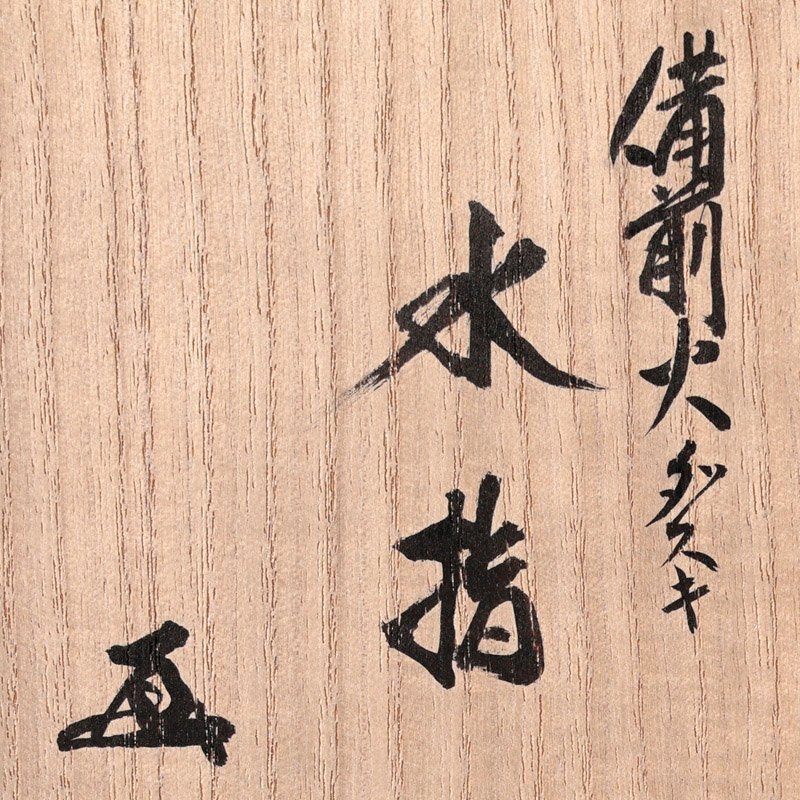 備前火ダスキ
水指